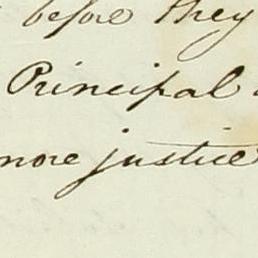 before they
Principal
more justice